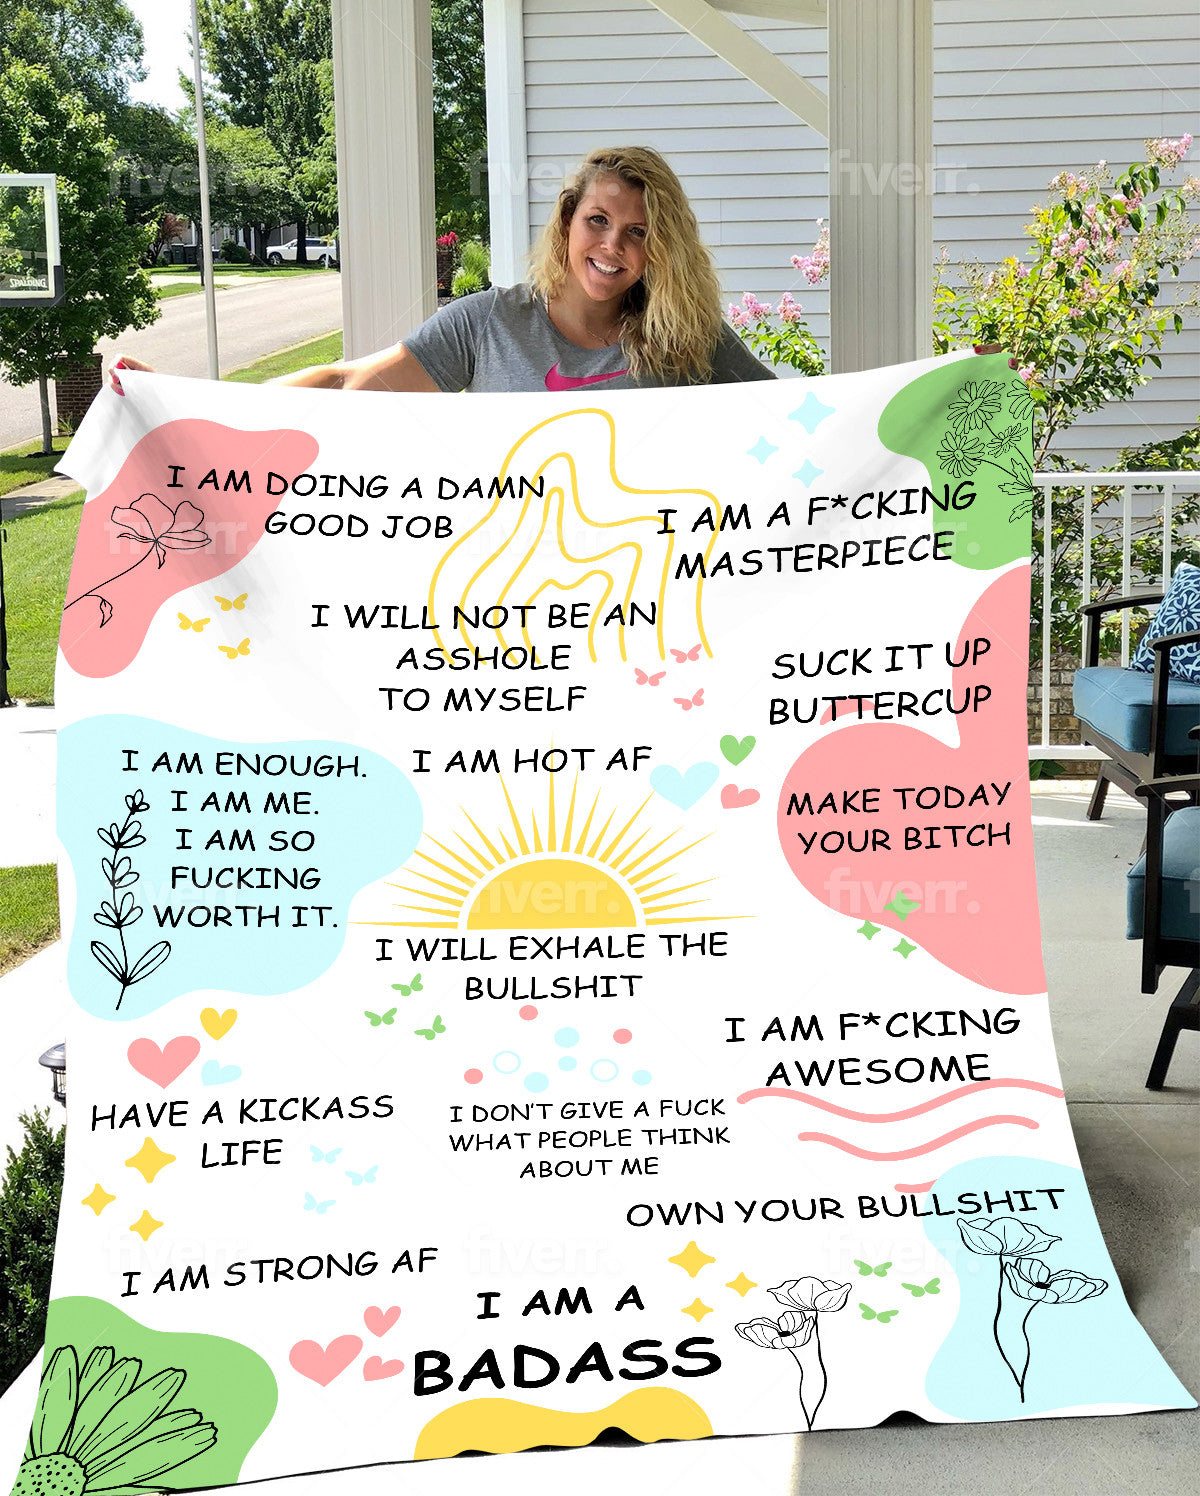 fiverr. fiverr. fiverr.
SPALDING
I AM DOING A DAMN
GOOD JOB
I AM A F*CKING
MASTERPIECE
fiverr. fiverr. fiverr.
I WILL NOT BE AN
ASSHOLE
TO MYSELF
SUCK IT UP
BUTTERCUP
I AM ENOUGH.
I AM ME.
I AM SO
FUCKING
WORTH IT.
I AM HOT AF
MAKE TODAY
YOUR BITCH
fiverr. fiverr. fiverr.
I WILL EXHALE THE
BULLSHIT
I AM F*CKING
AWESOME
HAVE A KICKASS
LIFE
I DON'T GIVE A FUCK
WHAT PEOPLE THINK
ABOUT ME
OWN YOUR BULLSHIT
fiverr. fiverr. fiverr.
I AM STRONG AF
I AM A
BADASS